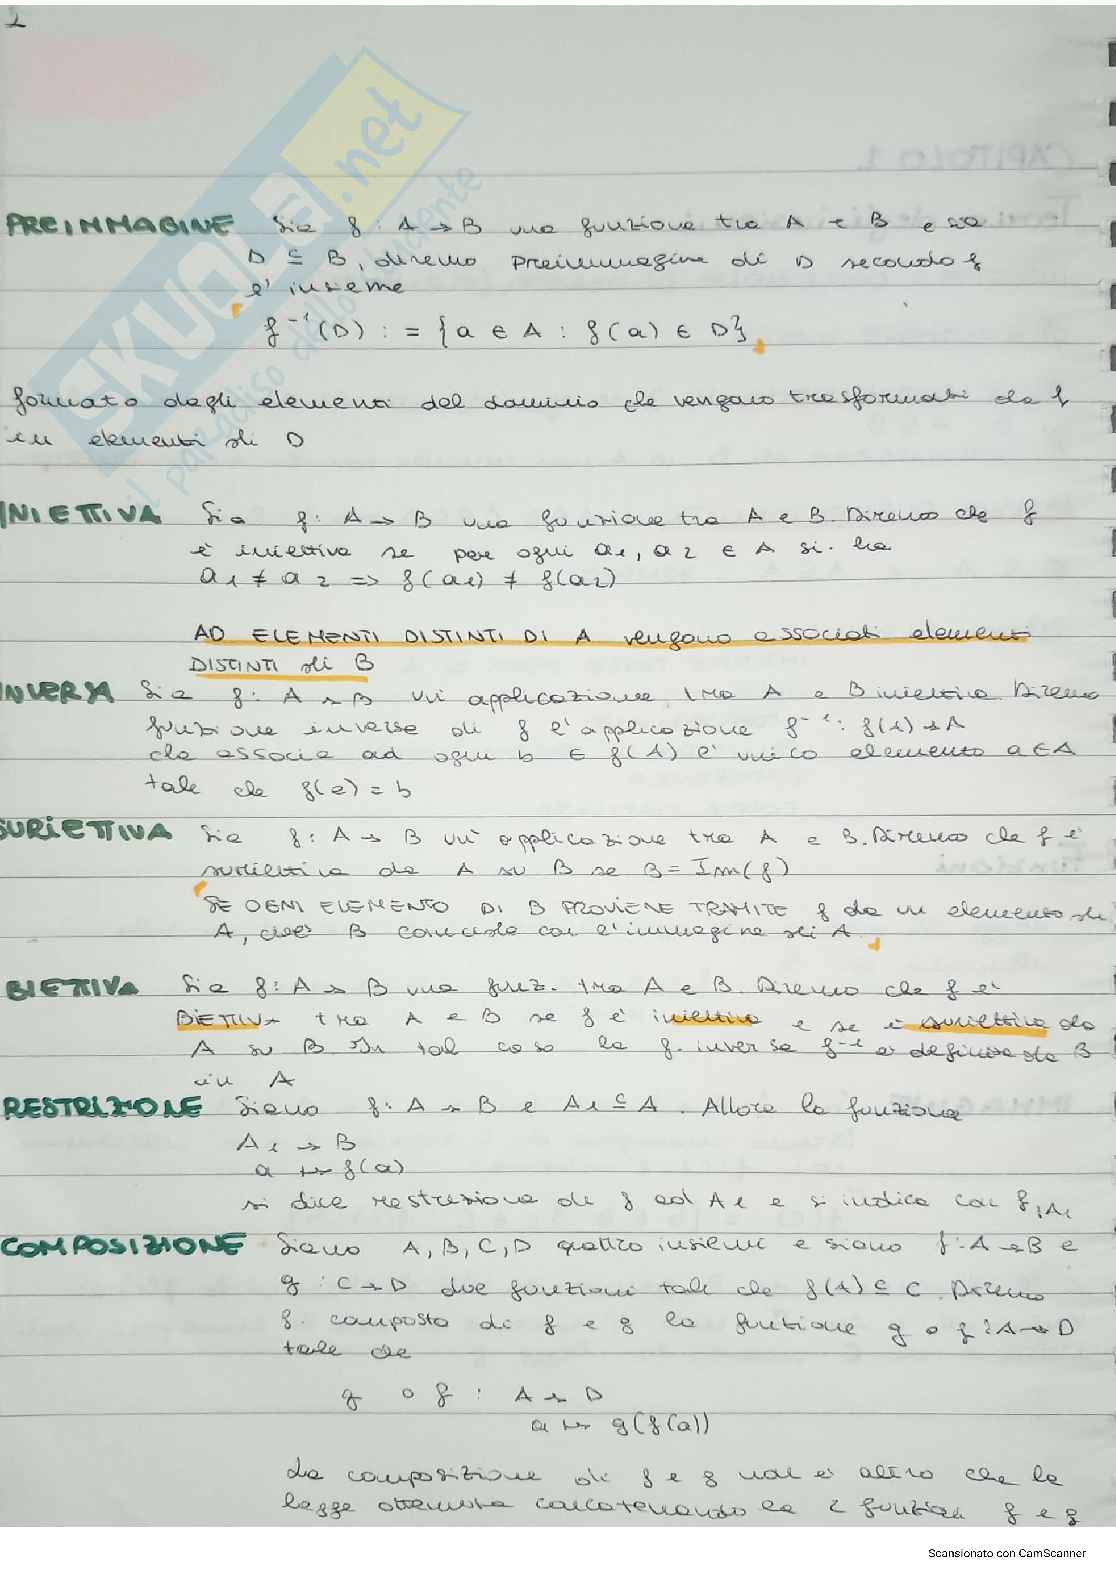 PREIMMAGINE Sia f : A → B una funzione tra A e B e sia
D ⊆ B, diremo preimmagine di D secondo f
l'insieme
f⁻¹(D) := {a ∈ A : f(a) ∈ D}
formato dagli elementi del dominio che vengano trasformati da f
in elementi di D
INIETTIVA Sia f : A → B una funzione tra A e B. Diremo che f
è iniettiva se per ogni a1, a2 ∈ A si ha
a1 ≠ a2 => f(a1) ≠ f(a2)
AD ELEMENTI DISTINTI DI A vengano associati elementi
DISTINTI di B
INVERSA Sia f : A → B un'applicazione tra A e B iniettiva. Diremo
funzione inversa di f l'applicazione f⁻¹ : f(A) → A
che associa ad ogni b ∈ f(A) l'unico elemento a ∈ A
tale che f(a) = b
SURIETTIVA Sia f : A → B un'applicazione tra A e B. Diremo che f è
suriettiva da A su B se B = Im(f)
SE OGNI ELEMENTO DI B PROVIENE TRAMITE f da un elemento di
A, cioè B coincide con l'immagine di A
BIETTIVA Sia f : A → B una funz. tra A e B. Diremo che f è
BIETTIVA tra A e B se f è iniettiva e se è suriettiva da
A su B. In tal caso la f. inversa f⁻¹ è definita da B
in A
RESTRIZIONE Siano f : A → B e A1 ⊆ A. Allora la funzione
A1 → B
a ↦ f(a)
si dice restrizione di f ad A1 e si indica con f|A1
COMPOSIZIONE Siano A, B, C, D quattro insiemi e siano f : A → B e
g : C → D due funzioni tale che f(A) ⊆ C. Diremo
f. composta di f e g la funzione g ∘ f : A → D
tale che
g ∘ f : A → D
a ↦ g(f(a))
La composizione di f e g non è altro che la
legge ottenuta concatenando le 2 funzioni f e g
SKUOLA.net
il paradiso dello studente
Scansionato con CamScanner